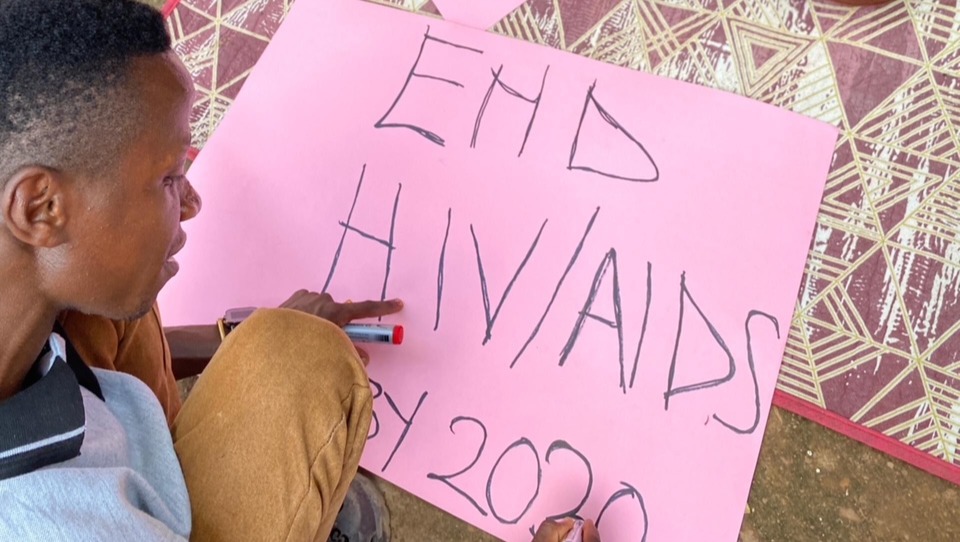 END
HIV/AIDS
BY 2030